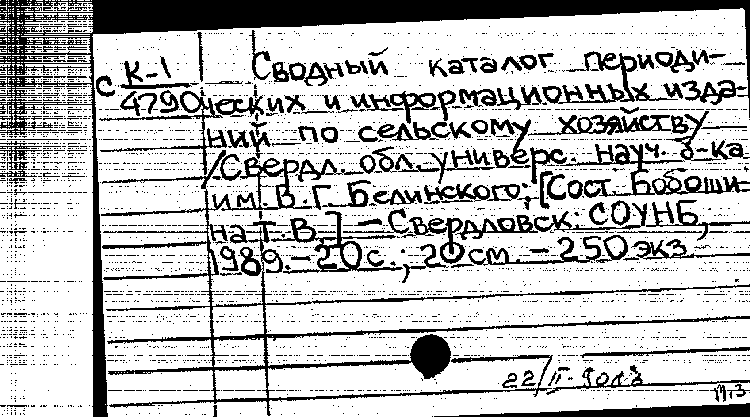 С К-1 Сводный каталог периоди-
4790 ческих и информационных изда-
ний по сельскому хозяйству
/Свердл. обл. универс. науч. б-ка
им. В. Г. Белинского; [Сост. Бобоши-
на Т. В.] – Свердловск: СОУНБ,
1989. – 20 с.; 20 см. – 250 экз.
22/II-90